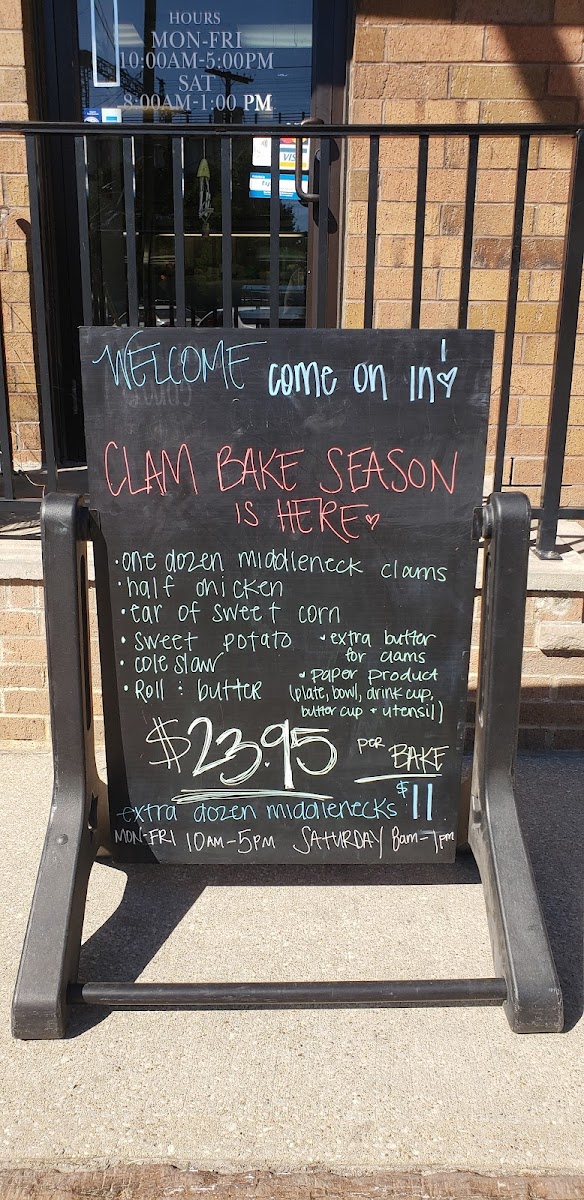 HOURS
MON-FRI
10:00AM-5:00PM
SAT
8:00AM-1:00 PM
VISA
WELCOME come on in!
CLAM BAKE SEASON
IS HERE
• one dozen middleneck clams
• half chicken
• ear of sweet corn
• sweet potato
• cole slaw
• Roll : butter
• extra butter
for clams
• paper product
(plate, bowl, drink cup,
butter cup + utensil)
$23.95 per BAKE
extra dozen middlenecks $11
MON-FRI 10AM-5PM SATURDAY 8am-1pm